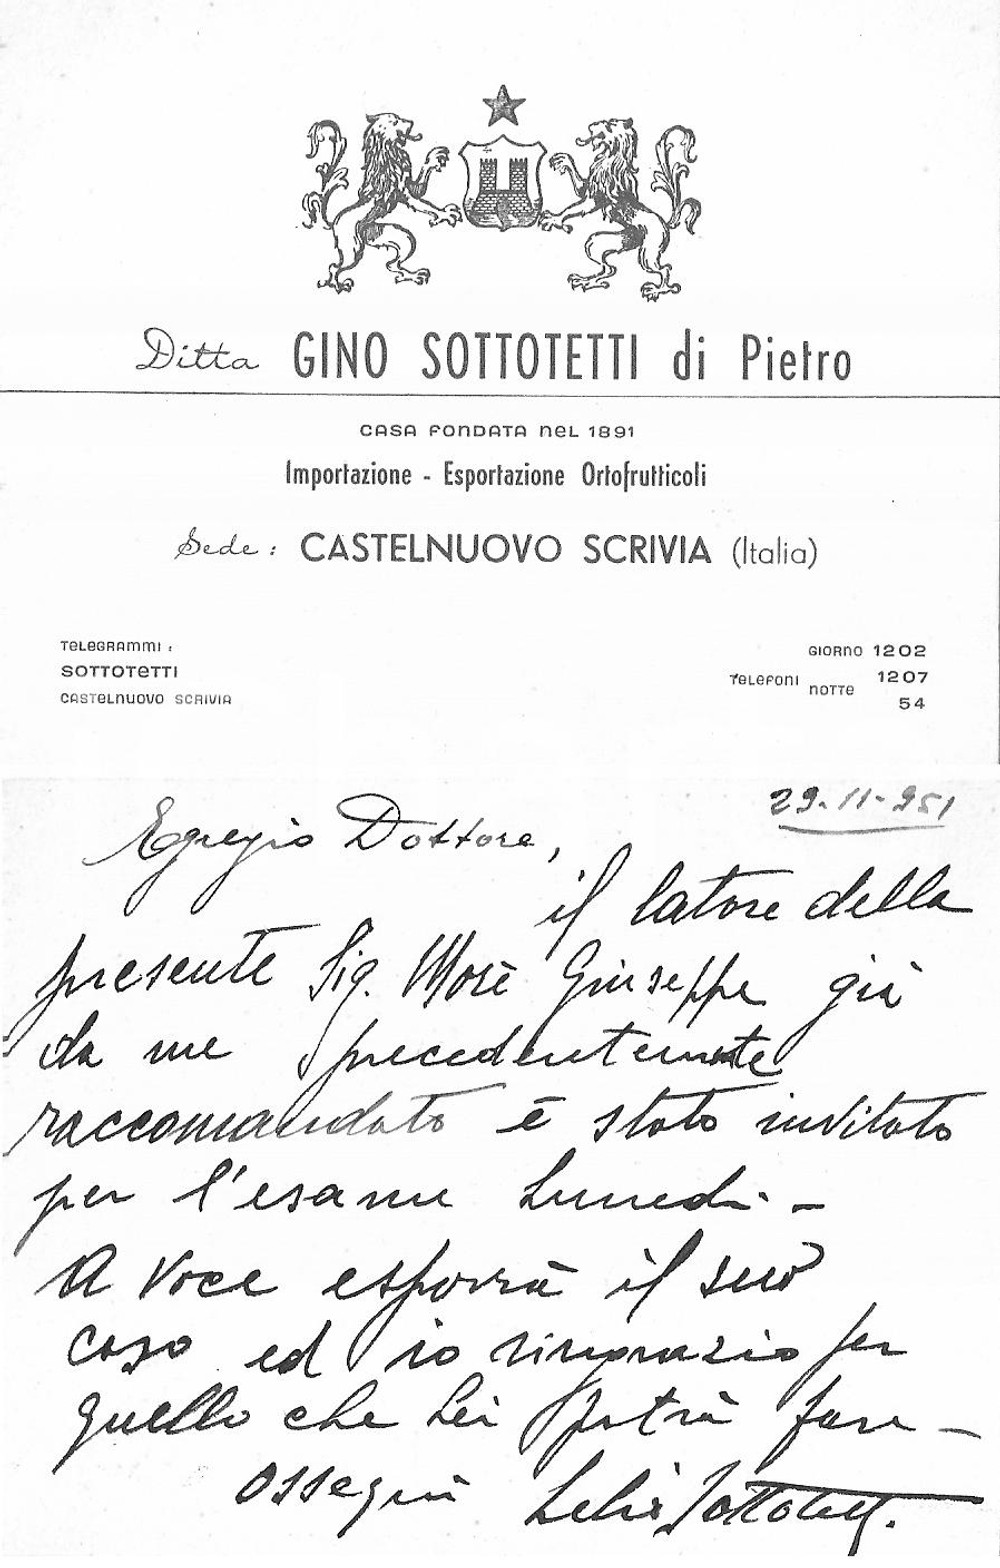 Ditta GINO SOTTOTETTI di Pietro
CASA FONDATA NEL 1891
Importazione - Esportazione Ortofrutticoli
Sede: CASTELNUOVO SCRIVIA (Italia)
TELEGRAMMI:
SOTTOTETTI
CASTELNUOVO SCRIVIA
GIORNO 1202
TELEFONI NOTTE 1207
54
29-11-951
Egregio Dottore,
il latore della
presente Sig. Morè Giuseppe già
da me precedentemente
raccomandato è stato invitato
per l'esame Lunedì. -
A voce esporrà il suo
caso ed io ringrazio per
quello che Lei potrà fare -
Ossequi Sottotetti.